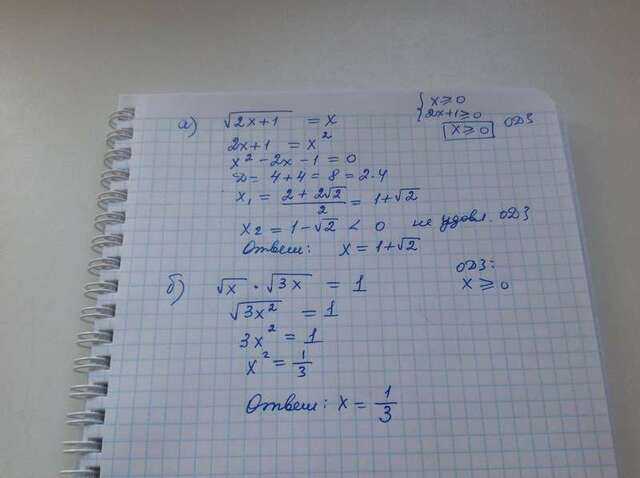 а) √2x+1 = x
{ x ≥ 0
2x+1 ≥ 0
x ≥ 0 ОДЗ
2x+1 = x²
x² - 2x - 1 = 0
D = 4+4 = 8 = 2·4
x₁ = (2 + 2√2)/2 = 1+√2
x₂ = 1-√2 < 0 не удовл. ОДЗ
Ответ: x = 1+√2
б) √x · √3x = 1
ОДЗ:
x ≥ 0
√3x² = 1
3x² = 1
x² = 1/3
Ответ: x = 1/3